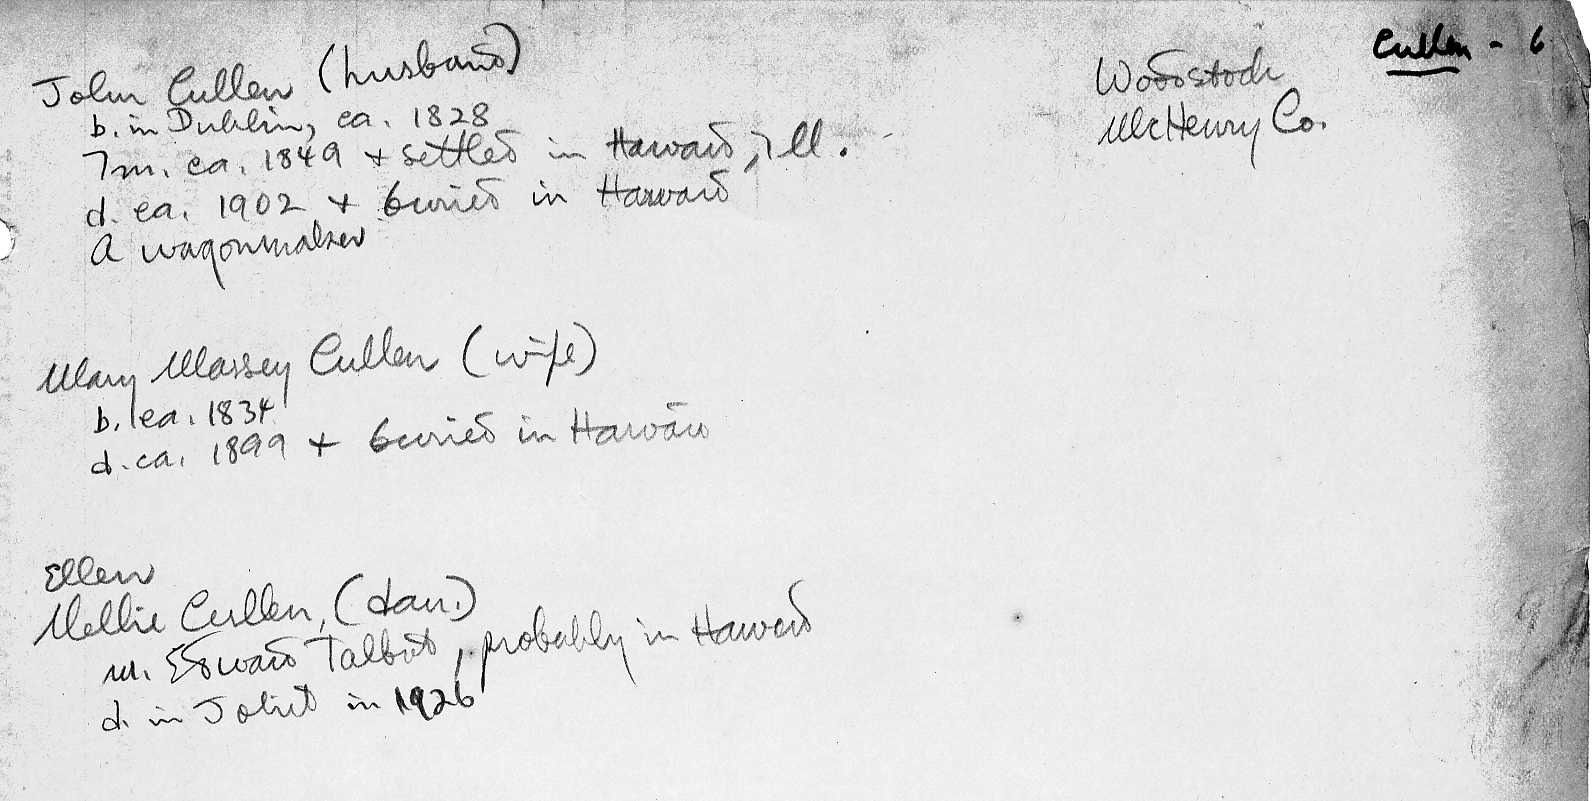 Cullen - 6
John Cullen (husband)
b. in Dublin, ca. 1828
Im. ca. 1849 + settled in Harvard, Ill.
d. ca. 1902 + buried in Harvard
A wagonmaker
Woodstock
McHenry Co.
Mary Massey Cullen (wife)
b. ca. 1834
d. ca. 1899 + buried in Harvard
Ellen
Nellie Cullen, (dau.)
m. Edward Talbot, probably in Harvard
d. in Joliet in 1926